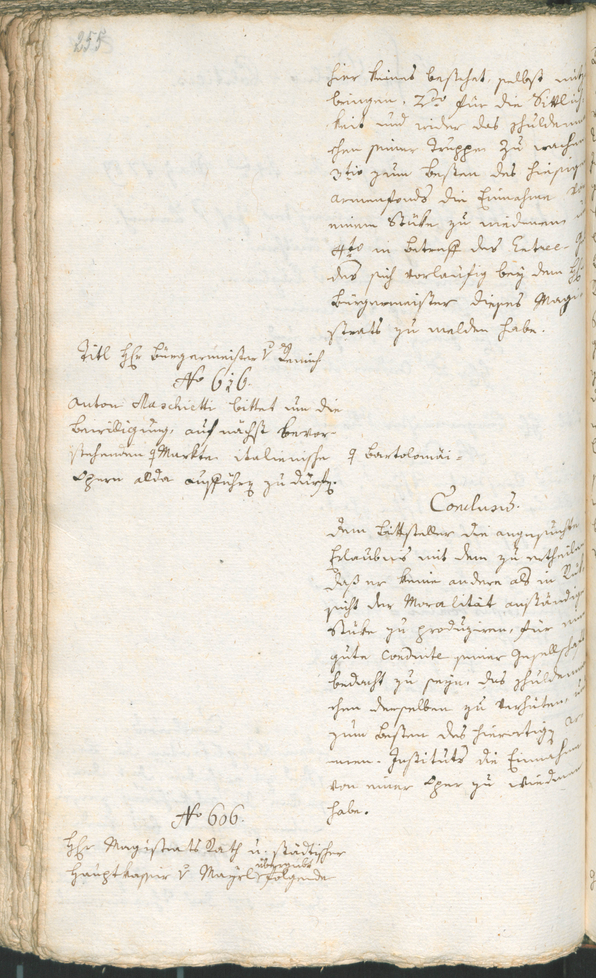 255
hier keines bestehet, selbst mit
bringen. 2do für die Sittlich
keit und wider das schulden
chen seiner Truppe zu wachen
3tio zum besten des hiesigen
armenfonds die Einnahme von
einem Stüke zu widmen u
4to in betreff des Entree
das sich vorläufig bey dem H
Bürgermeister dieses Magi
strats zu melden habe.
Titl Hr Bürgermeister v
No 616.
Anton Maschietti bittet um die
Bewilligung, auf nächst bevor-
stehenden Markte italienische
Opern alda aufführen zu dürfen.
Bartolomäi-
Conclusum.
Dem Bittsteller die angesuchte
Erlaubnis mit dem zu ertheilen
daß er keine andere als in Rük
sicht der Moralität anständige
Stüke zu produziren, für eine
gute Conduite seiner Gesellschaft
bedacht zu seyn, das schulden
chen derselben zu verhüten, u
zum besten des hierortigen Ar
men-Instituts die Einnahme
von einer Oper zu wiedmen
habe.
No 606.
Hr Magistrats Rath u. städtischer
Hauptkassier v Mayrl übergiebt folgende